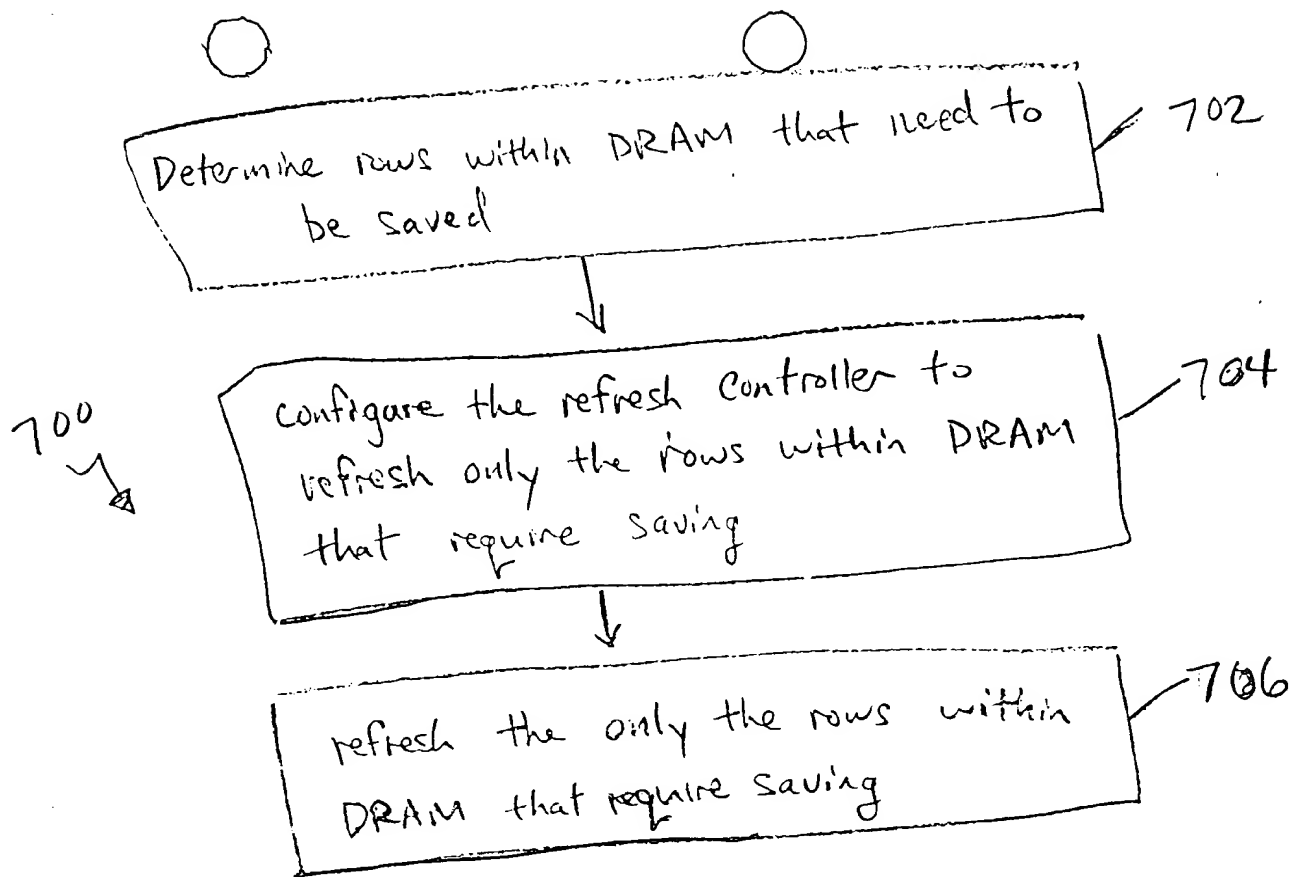 Determine rows within DRAM that need to
702
be saved
configure the refresh controller to
704
700
refresh only the rows within DRAM
that require saving
706
refresh the only the rows within
DRAM that require saving